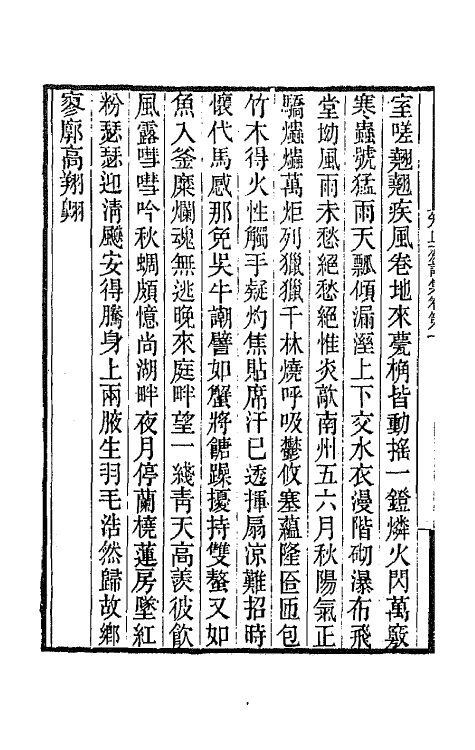 室嗟翹翹疾風卷地來甍桷皆動搖一鐙燐火閃萬竅
寒蟲號猛雨天瓢傾漏溼上下交水衣漫階砌瀑布飛
堂坳風雨未愁絕愁絕惟炎歊南州五六月秋陽氣正
驕爞爞萬炬列獵獵千林燒呼吸鬱攸塞蘊隆匼匝包
竹木得火性觸手疑灼焦貼席汗已透揮扇涼難招時
懷代馬感那免吳牛謿譬如蟹將餹躁擾持雙螯又如
魚入釜糜爛魂無逃晚來庭畔望一綫靑天高羨彼飲
風露嘒嘒吟秋蜩頗憶尚湖畔夜月停蘭橈蓮房墜紅
粉瑟瑟迎淸飇安得騰身上兩腋生羽毛浩然歸故鄕
寥廓高翔翺